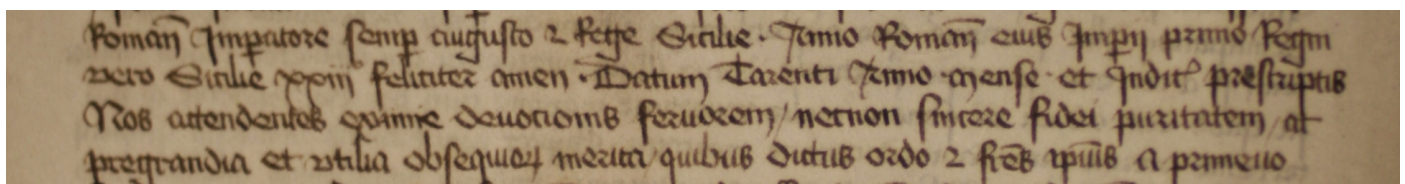 Romañ Imp̱atore semp̱ augusto ⁊ Rege Sicilie · Anno Romañ eiu᷒ Imp̱ii primo Regni
vero Sicilie xxiii feliciter amen · Datum Tarenti Anno · mense · et Indit᷒ prescriptis
Nos attendentes eximie deuotionis feruorem / necnon sincere fidei puritatem / ac
pregrandia et vtilia obsequioꝝ merita / quibus dictus ordo ⁊ fr̄es ip̄ius a primeuo